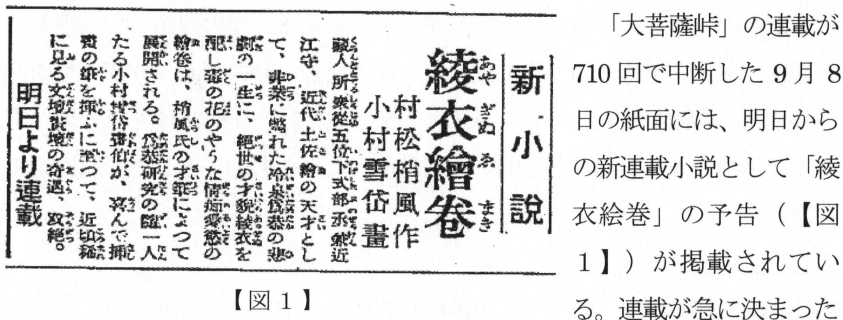 新小説
綾衣繪卷
あやぎぬゑまき
村松梢風作
小村雪岱畫
藏人所衆從五位下式部丞兼近
江守、近代土佐繪の天才とし
て、非業に斃れた冷泉爲恭の悲
劇の一生に、絶世の才貌綾衣を
配し毒の花のやうな情痴愛慾の
繪卷は、梢風氏の才筆によつて
展開される。爲恭研究の隨一人
たる小村雪岱畫伯が、喜んで挿
畫の筆を揮ふに至つて、近頃稀
に見る文壇畫壇の奇遇、双絶。
明日より連載
【図1】
「大菩薩峠」の連載が
710回で中断した9月8
日の紙面には、明日から
の新連載小説として「綾
衣絵巻」の予告（【図
1】）が掲載されてい
る。連載が急に決まった